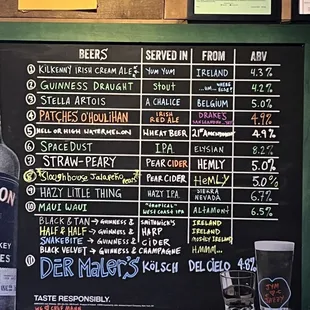 BEERS SERVED IN FROM ABV
1 KILKENNY IRISH CREAM ALE YUM YUM IRELAND 4.3%
2 GUINNESS DRAUGHT STOUT ...UM... WHERE ELSE? 4.2%
3 STELLA ARTOIS A CHALICE BELGIUM 5.0%
4 PATCHES O'HOULIHAN IRISH RED ALE DRAKE'S 4.9%
5 HELL OR HIGH WATERMELON WHEAT BEER 21st AMENDMENT 4.9%
6 SPACEDUST I.P.A. ELYSIAN 8.2%
7 STRAW-PEARY PEAR CIDER HEMLY 5.0%
8 Sloughhouse Jalapeño PEAR CIDER HEMLY 5.0%
9 HAZY LITTLE THING HAZY IPA SIERRA NEVADA 6.7%
10 MAUI WAUI "TROPICAL" WEST COAST IPA ALTAMONT 6.5%
BLACK & TAN → GUINNESS & SMITHWICK'S IRELAND
HALF & HALF → GUINNESS & HARP IRELAND
SNAKEBITE → GUINNESS & CIDER MOSTLY IRELAND
BLACK VELVET → GUINNESS & CHAMPAGNE
DER MALER'S KÖLSCH DEL CIELO 4.8%
TASTE RESPONSIBLY.